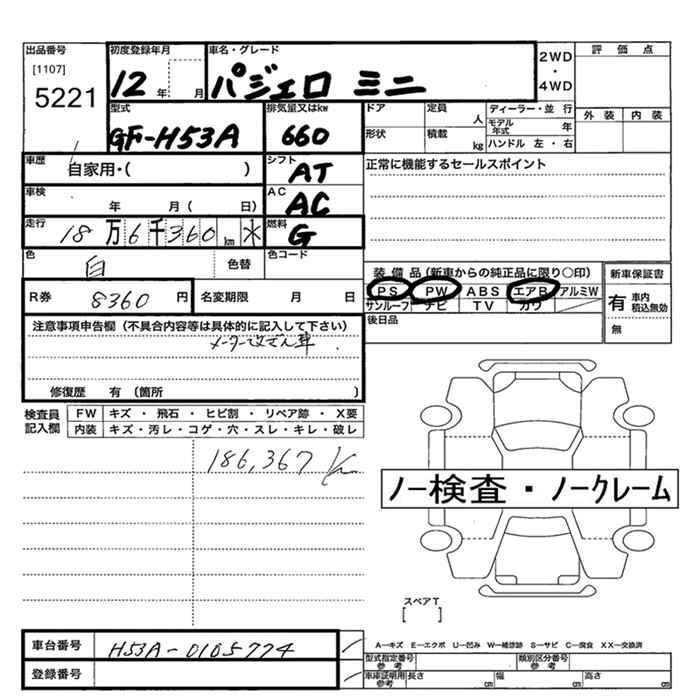 出品番号 初度登録年月 車名・グレード
[1107]
5221
12 年 月 パジェロ ミニ
2WD
・
4WD
評 価 点
外 装 内 装
型式 排気量又はkw ドア 定員 人 ディーラー・並 行
GF-H53A 660
形状 積載 kg モデル年式 年
ハンドル 左 ・ 右
車歴 自家用・( )
シフト AT
正常に機能するセールスポイント
車検 年 月 ( 日)
AC AC
走行 18万6千360 km 水
燃料 G
色 白 色替 色コード
装 備 品 (新車からの純正品に限り○印)
PS PW ABS エアB アルミW
サンルーフ ナビ TV カワ
後日品
新車保証書
有 車内積込無効
無
R券 8360 円 名変期限 月 日
注意事項申告欄 (不具合内容等は具体的に記入して下さい)
メーター改ざん車
修復歴 有 (箇所 )
検査員記入欄
FW キズ ・ 飛石 ・ ヒビ割 ・ リペア跡 ・ X要
内装 キズ・汚レ・コゲ・穴・スレ・キレ・破レ
186,367 Km
ノー検査・ノークレーム
スペアT
[ ]
車台番号 H53A-0105774
登録番号
A―キズ E―エクボ U―凹み W―補修跡 S―サビ C―腐食 XX―交換済
型式指定番号 参考 類別区分番号 参考
車庫証明用 参考 長さ cm 幅 cm 高さ cm